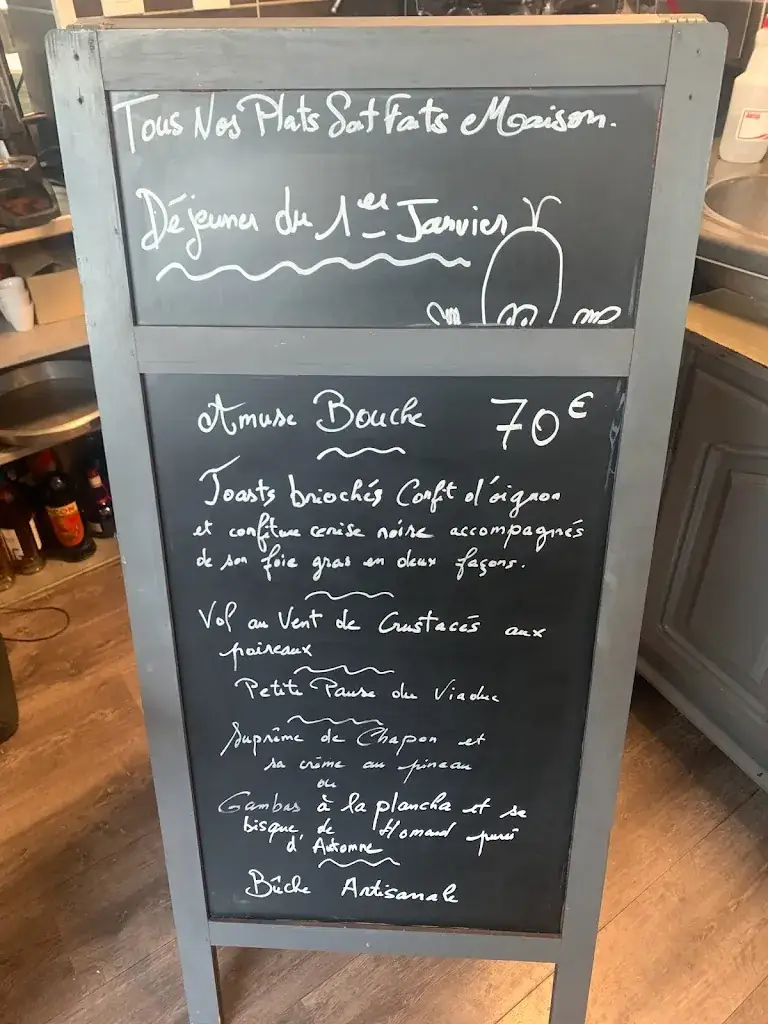 Tous Nos Plats Sont Faits Maison.
Déjeuner du 1er Janvier
Amuse Bouche 70€
Toasts briochés Confit d'oignon
et confiture cerise noire accompagnés
de son foie gras en deux façons.
Vol au Vent de Crustacés aux
poireaux
Petite Pause du Viaduc
Suprême de Chapon et
sa crème au pineau
ou
Gambas à la plancha et sa
bisque de Homard purée
d'Automne
Bûche Artisanale